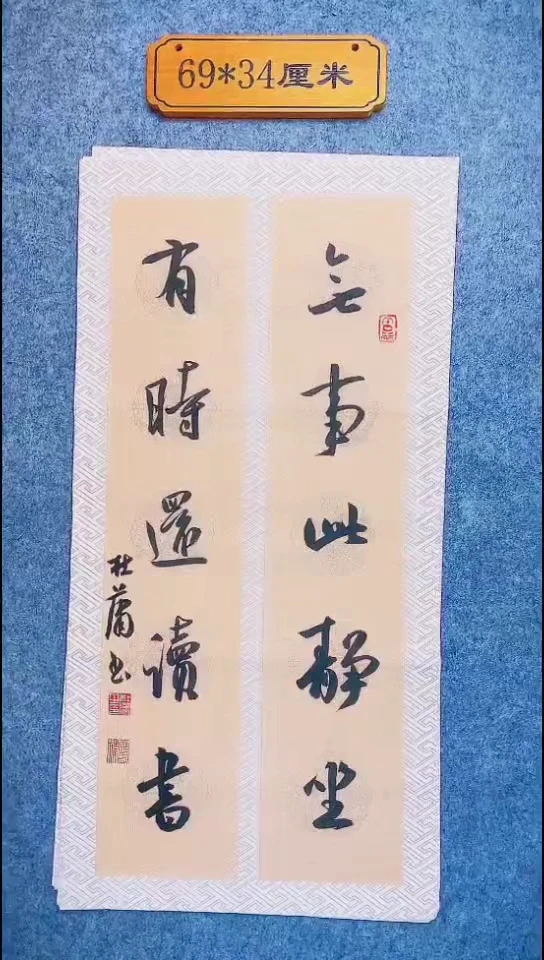 69*34厘米
無事此靜坐
有時還讀書
杜蒲书